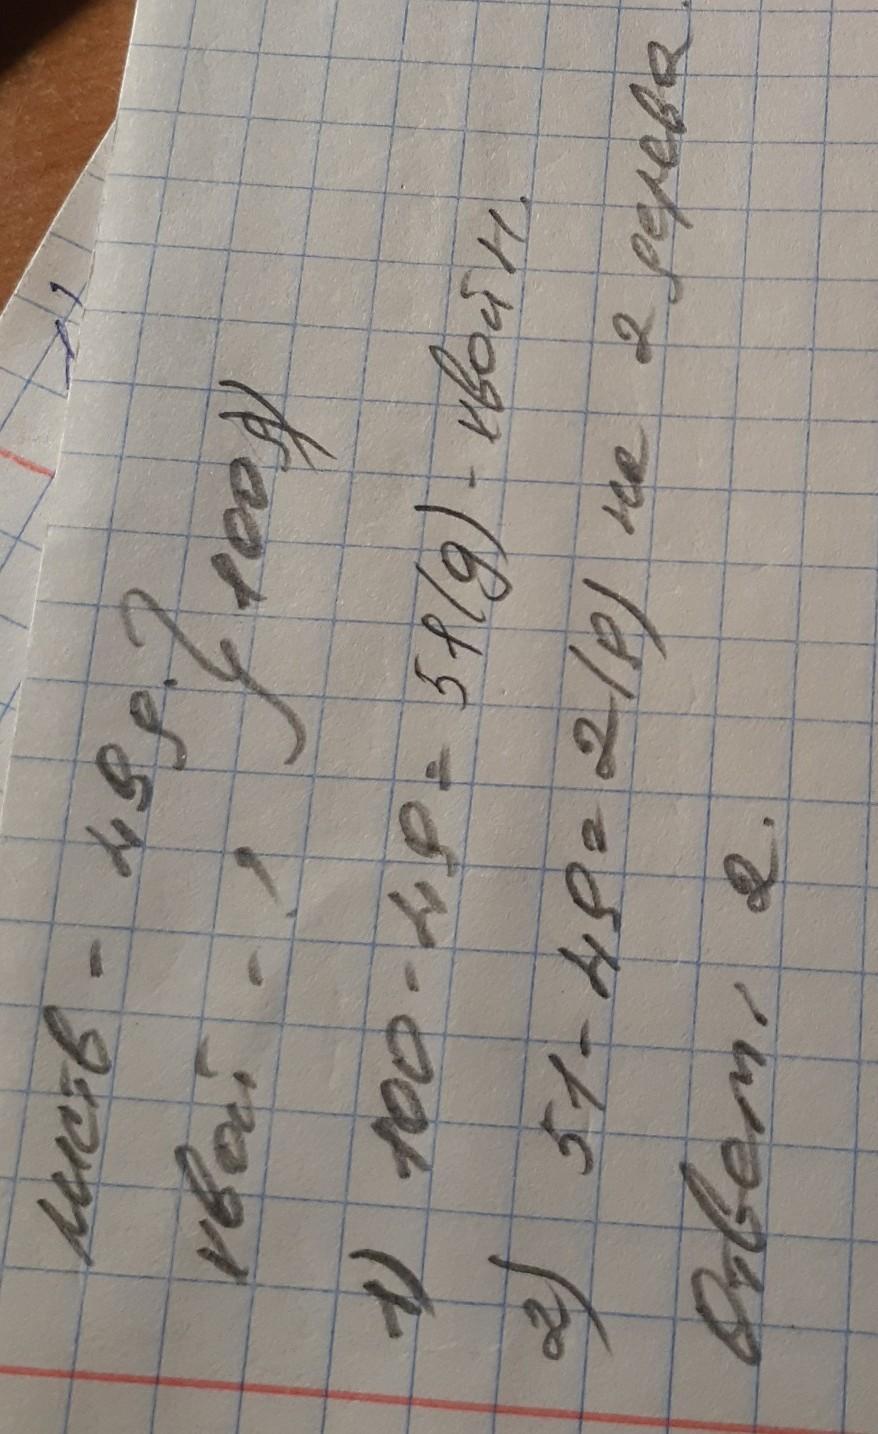 листв - 49 д.
хвой -, 100 д)
1) 100 - 49 = 51 (д) - хвойн.
2) 51 - 49 = 2 (р) на 2 дерева.
Ответ, 2.